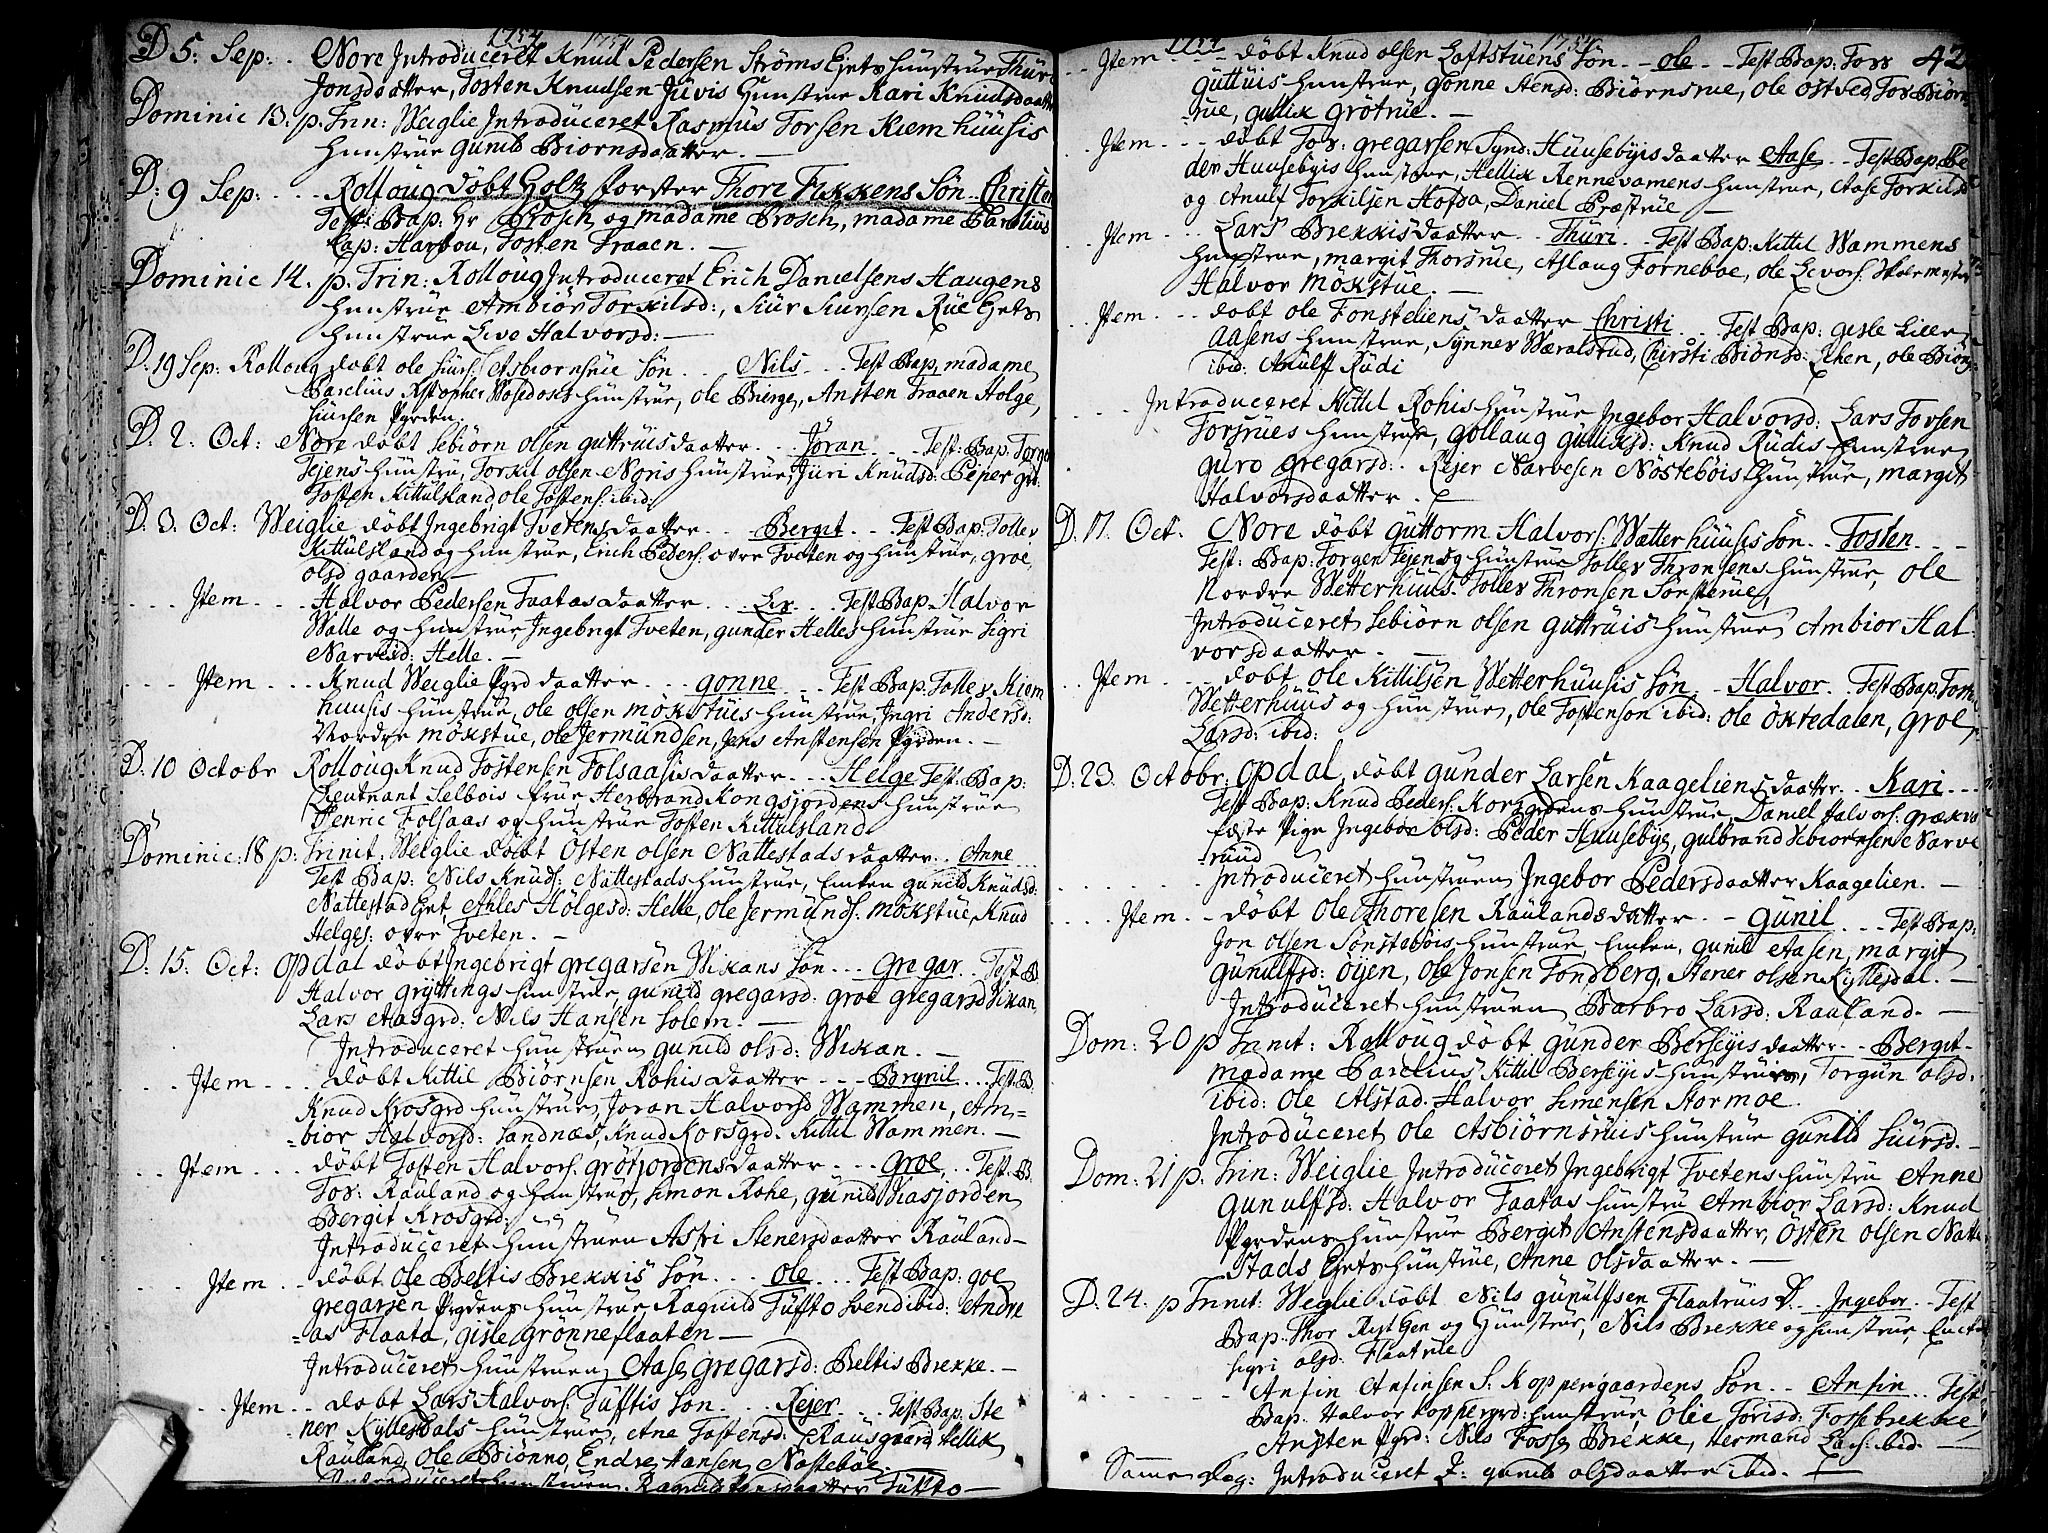 1754 1754
D 5: Sep: . Nore Introduceret Knud Pedersen Ströms Ejets hunstrue Thuri
Jonsdaatter, Tosten Knudsen Juvis Hunstrue Kari Knudsdaatter
Dominic 13. p. Trin: Weiglie Introduceret Rasmus Torsen Kiemhuusis
hunstrue Gunild Biornsdaatter. —
D: 9 Sep: . . . . Rolloug döbt Holtzforster Thore Fikkens Sön . . Christen
Test: Bap: Hr Brosch og madame Brosch, madame Barelius
Cap: Harbou, Tosten Traaen. —
Dominic 14. p. Trin: Rolloug Introduceret Erich Danielsens Haugens
hunstrue Ambiör Torkilsd:, Siur Siursen Rüe Ejets
hunstrue Live Halvorsd: —
D: 19 Sep: Rolloug döbt ole Siurs: Asbiornsrüe Sön . . Nils . . . Test Bap, madame
Barelius Kstopher Mosedoks hunstrue, ole Bierge, Ansten Traaen Holge
Siursen Pgrden.
D. 2. Oct: Nore döbt Sebiörn olsen Guttruis daatter . . . Jöran . . . Test: Bap: Torgen
Tejens hunstru, Torkil olsen Noris hunstrue, Juri Knudsd: Pepergrd.
Tosten Kittulsland, ole Tostens: ibid:
D: 3. Oct: Weiglie döbt Ingebrigt Tvetens daatter . . . Bergit . . Test Bap: Tollev
Kittulsland og hunstrue, Erich Peders: ovre Tveten og hunstrue, Groe
olsd Gaarden —
. . . . Jtem . . . . Halvor Pedersen Faatas daatter . . . Liv . . . Test Bap. Halvor
Walle og hunstrue Ingebrigt Tveten, Gunder Helles hunstrue Sigri
Narvesd: Helle. —
. . . . Jtem . . . Knud Weiglie Pgrd daatter . . . Gonne . . . Test Bap: Tollev Kiem
huusis hunstrue, ole olsen Mökstuis hunstrue, Ingri Andersd:
Nordre Mökstue, ole Jermundsen, Jens Anstensen Pgrden. —
D: 10 Octobr Rolloug Knud Tostensen Folsaasis daatter . . . Helge Test: Bap:
Lieutnant Selbois frue, Herbrand Kongsjordens hunstrue
Henric Folsaas og hunstrue Tosten Kittulsland
Dominic: 18 p: Trinit. Weiglie döbt Östen olsen Nattestads daatter . . Anne . . .
Test Bap: Nils Knuds: Nattestads hunstrue, Enken Gunild Knudsd:
Nattestad Ejet Ahles Holgesd: Helle, ole Jermunds: Mökstue, Knud
Helges: ovre Tveten. —
D: 15. Oct: Opdal döbt Ingebrigt Gregarsen Wikans Sön . . . Gregar . . Test: B.
Halvor Gryttings hunstrue, Gunild Gregarsd: Groe Gregarsd Wikan,
Lars Aasgrd: Nils Hansen Solem. —
Introduceret hunstruen Gunild olsd: Wikan. —
. . . Jtem . . . döbt Kittil Biörnsen Rohis daatter . . . Brynil . . . Test: B:
Knud Krosgrd hunstrue, Joran Halvorsd Wammen, Am=
=bior Halvorsd: Sandnæs, Knud Korsgrd. Kittil Wammen. —
. . Jtem . . . döbt Tosten Halvors: Grötjordens daatter . . . Groe . . . Test: B.
Tor: Rauland og hunstrue, Simon Rohe, Gunild Kiasjorden
Bergit Krosgrd:
Introduceret hunstruen Astri Stenersdaatter Rauland —
. . . Jtem . . döbt Ole Beltis Brekkis Sön . . . Ole . . . Test Bap: Goe
Gregarsen Pgrdens hunstrue Ragnild Tuffto Svend ibid: Andre
as Flaata, Gisle Grönneflaaten —
Introduceret hunstruen Aase Gregarsd: Beltis Brekke. —
. . Jtem . . döbt Lars Halvors: Tufftis Sön . . . Rejer . . . Test Bap: Ste
ner Kyllesdals hunstrue, Ane Tostensd: Rausgaard, Hellik
Rauland, Ole Biönno, Endre Hansen Nöstebøe.
Introduceret hunstruen Ragnild daatter Tuffto —
1754 1754 42
. . Jtem . . . döbt Knud olsen Loftstuens Sön . . ole . . Test Bap: Tors
Guttuis hunstrue, Gonne Stensd: Biörnsrue, Ole Östsed, Tor Biörn
=rue, Gullik Grötrue. —
. . Jtem . . . döbt Tor: Gregarsen Synd: Huusebyis daatter Aase . . Test Bap: Pe
der Huusebyis hunstrue, Hellik Rennevamens hunstrue, Aase Torkilsd
og Anulf Torkilsen Hofda, Daniel Præstrue —
. . Jtem . . . Lars Brekkis daatter . . Thuri . . Test Bap: Kittil Wammens
hunstrue, Margit Thorsrue, Aslaug Forneboe, Ole Levors: Skolemester
Halvor Mökstue. —
. . Jtem . . . döbt ole Fonsteliens daatter Christi . . . Test Bap: Gisle Lien
Aasens hunstrue, Synnev Wæralsrud, Chirsti Biönsd: Lien, ole Biöng:
ibid: Anulff Rudi
. . . . Introduceret Kittil Rohis hunstrue Ingebor Halvorsd: Lars Torsen
Torsrues hunstrue, Gollaug Gulliksd: Knud Rudis hunstrue
Guro Gregarsd: . Rejer Narvesen Nöstebois hunstrue, Margit
Halvorsdaatter . —
D. 17. Oct. Nore döbt Guttorm Halvors: Wætterhuusis Sön . . Tosten . . .
Test: Bap: Torgen Tejens og hunstrue Tollev Thronsens hunstrue, Ole
Nordre Wetterhuus. Tollev Thronsen Tonsterue,
Introduceret Sebiörn olsen Guttruis hunstrue Ambior Hal
vorsdaatter . —
. . Jtem . . . döbt Ole Kittilsen Wetterhuusis Sön . . Halvor . Test Bap: Torkil
Wetterhuus og hunstrue, Ole Tostenson ibid: Ole Öktedalen, Groe
Larsd: ibid:
D: 23. Octobr: Opdal, döbt Gunder Larsen Kaageliens daatter . . Kari . . .
Test Bap: Knud Peders: Korsgrdens hunstrue, Daniel Halvors: Grækis
fæste Pige Ingebor olsd: Peder Huusebye, Gulbrand Sebiornsen Narve
=ruud
. . . . . . Introduceret hunstruen Ingebor Pedersdaatter Kaagelien. —
. . . Jtem . . döbt Ole Thoresen Raulands datter . . Gunil . . . Test Bap:
Jon olsen Sönstebois hunstrue, Enken Gunild Aasen, Margit
Gunulfsd: Öyen, Ole Jonsen Tondberg, Stener olsen Kyllesdal. —
Introduceret hunstruen Barbro Larsd: Rauland. —
Dom: 20 p Trinit: Rolloug döbt Gunder Berseyis daatter . . Bergit .
Madame Barelius Kittil Berseyis hunstrue, Torgun olsd:
ibid: Ole Alstad. Halvor Simensen Stormoe.
Introduceret Ole Asbiörnsruis hunstrue Gunild Siursd. —
Dom: 21 p. Trin: Weiglie Introduceret Ingebrigt Tvetens hunstru Anne
Gunulffsd: Halvor Faatas hunstru Ambior Larsd: Knud
Pgrdens hunstrue Bergit Anstensdaatter, Östen olsen Natte
stads Ejets hunstrue, Anne Olsdaatter. —
D: 24. p Trinit: Weglie döbt Nils Gunulfsen Flaatruis D. . Ingebor . . Test
Bap: Thor og Hunstrue, Nils Brekke og hunstrue,
Sigri olsd: Flaatrue
. . . . . Ansin Ansinsen S: Koppergaardens Sön . . Ansin . . Test
Bap. Halvor Koppergrd: hunstrue Olie Torisd: Fossebrekke
Ansten Pgrd: Nils Fosse Brekke, Hermand Lars: ibid. —
Samme Dag: Introduceret Gunild olsdaatter ibid. —